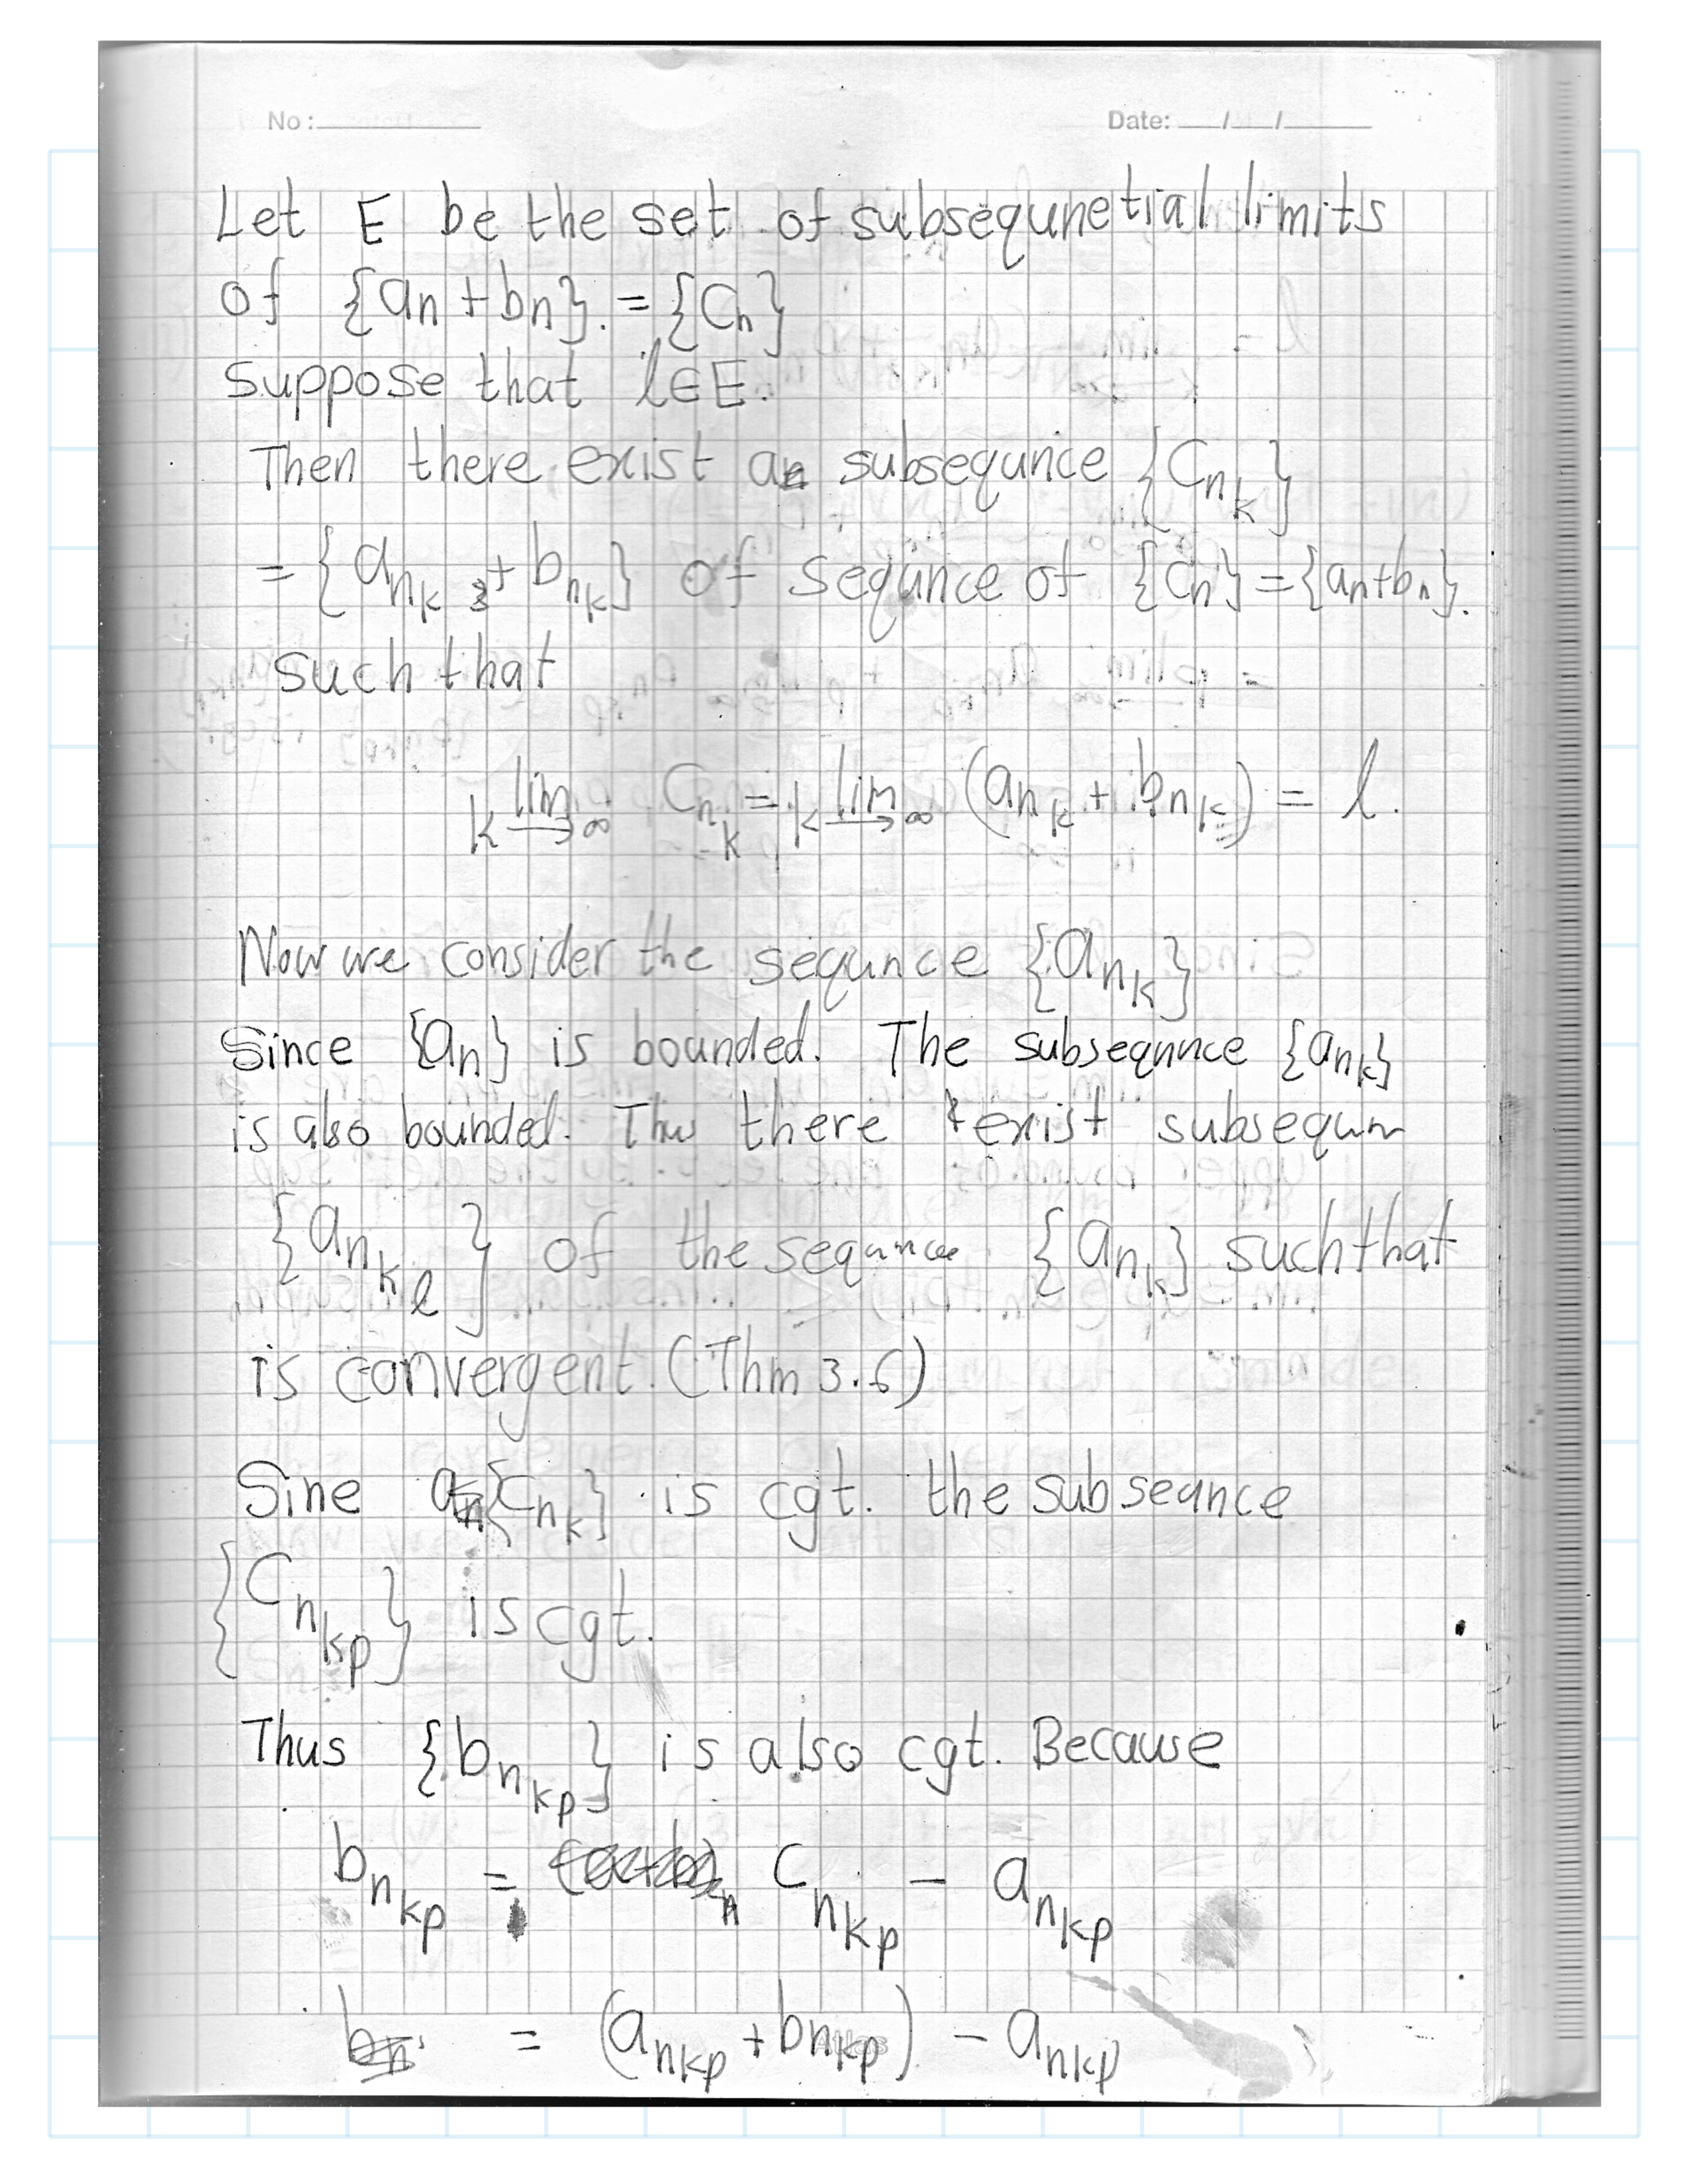 No: Date: / /
Let E be the set of subsequnetial limits
of {an + bn}. = {Cn}
suppose that l∈E.
Then there exist a subsequnce {C_{n_k}}
= {a_{n_k} + b_{n_k}} of sequnce of {Cn} = {an+bn}.
such that
lim_{k→∞} C_{n_k} = lim_{k→∞} (a_{n_k} + b_{n_k}) = l.
Now we consider the sequnce {a_{n_k}}
Since {an} is bounded. The subsequnce {a_{n_k}}
is also bounded. Thus there exist subsequn
{a_{n_{k_l}}} of the sequnce {a_{n_k}} such that
is convergent. (Thm 3.6)
Sine {C_{n_k}} is cgt. the subseance
{C_{n_{kp}}} is cgt.
Thus {b_{n_{kp}}} is also cgt. Because
b_{n_{kp}} = C_{n_{kp}} - a_{n_{kp}}
= (a_{n_{kp}} + b_{n_{kp}}) - a_{n_{kp}}